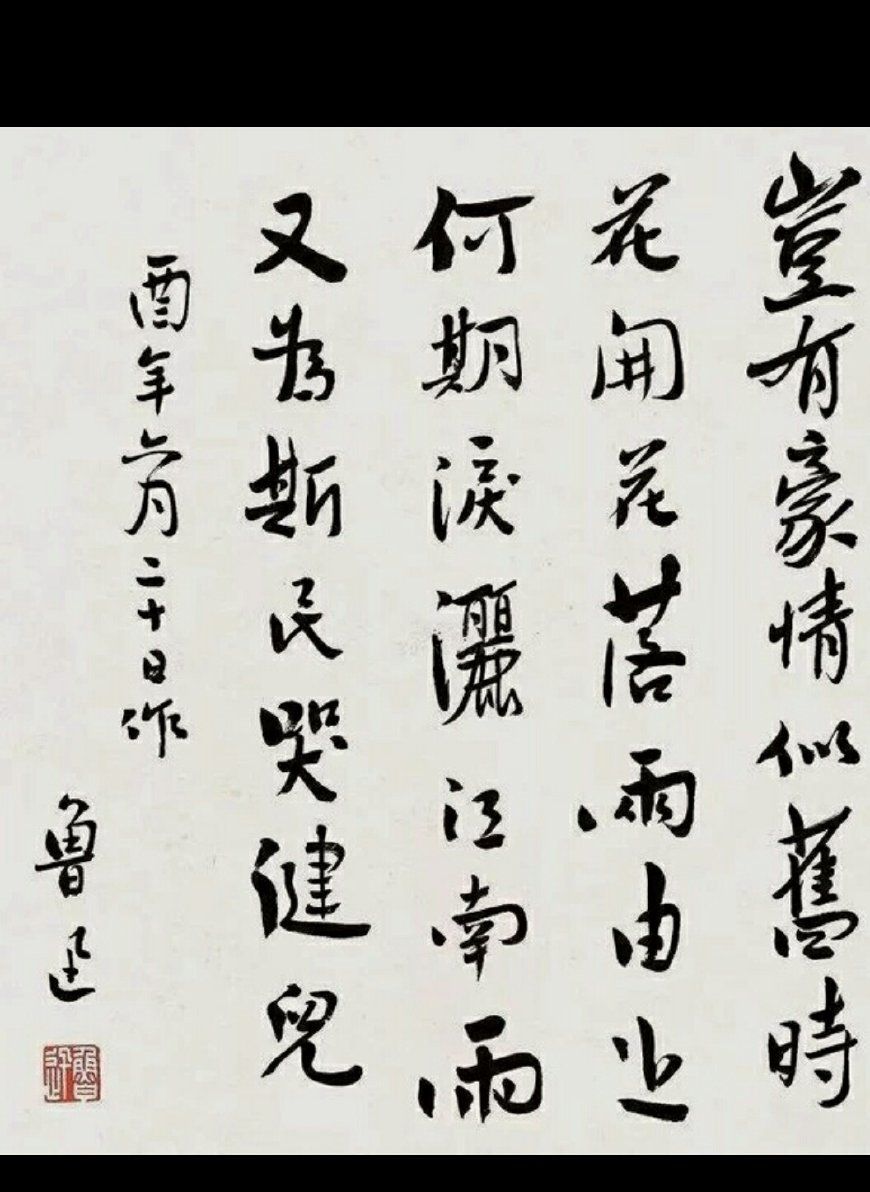 豈有豪情似舊時
花開花落兩由之
何期淚灑江南雨
又為斯民哭健兒
酉年六月二十日作
魯迅
魯迅